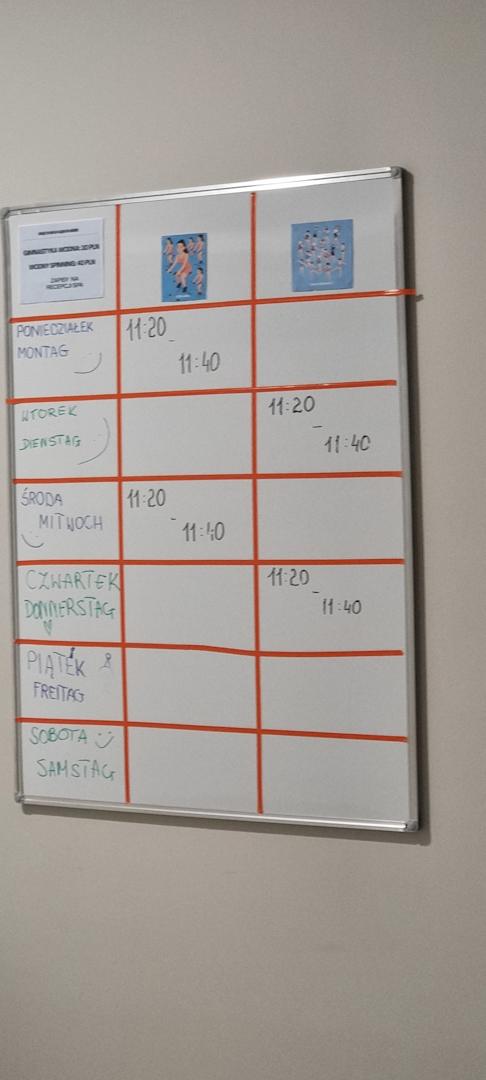 GIMNASTYKA WODNA: 30 PLN
WODNY SPINNING: 40 PLN
ZAPISY NA
RECEPCJI SPA
PONIEDZIAŁEK
MONTAG
11:20 -
11:40
WTOREK
DIENSTAG
11:20 -
11:40
ŚRODA
MITWOCH
11:20 -
11:40
CZWARTEK
DONNERSTAG
11:20 -
11:40
PIĄTEK
FREITAG
SOBOTA
SAMSTAG